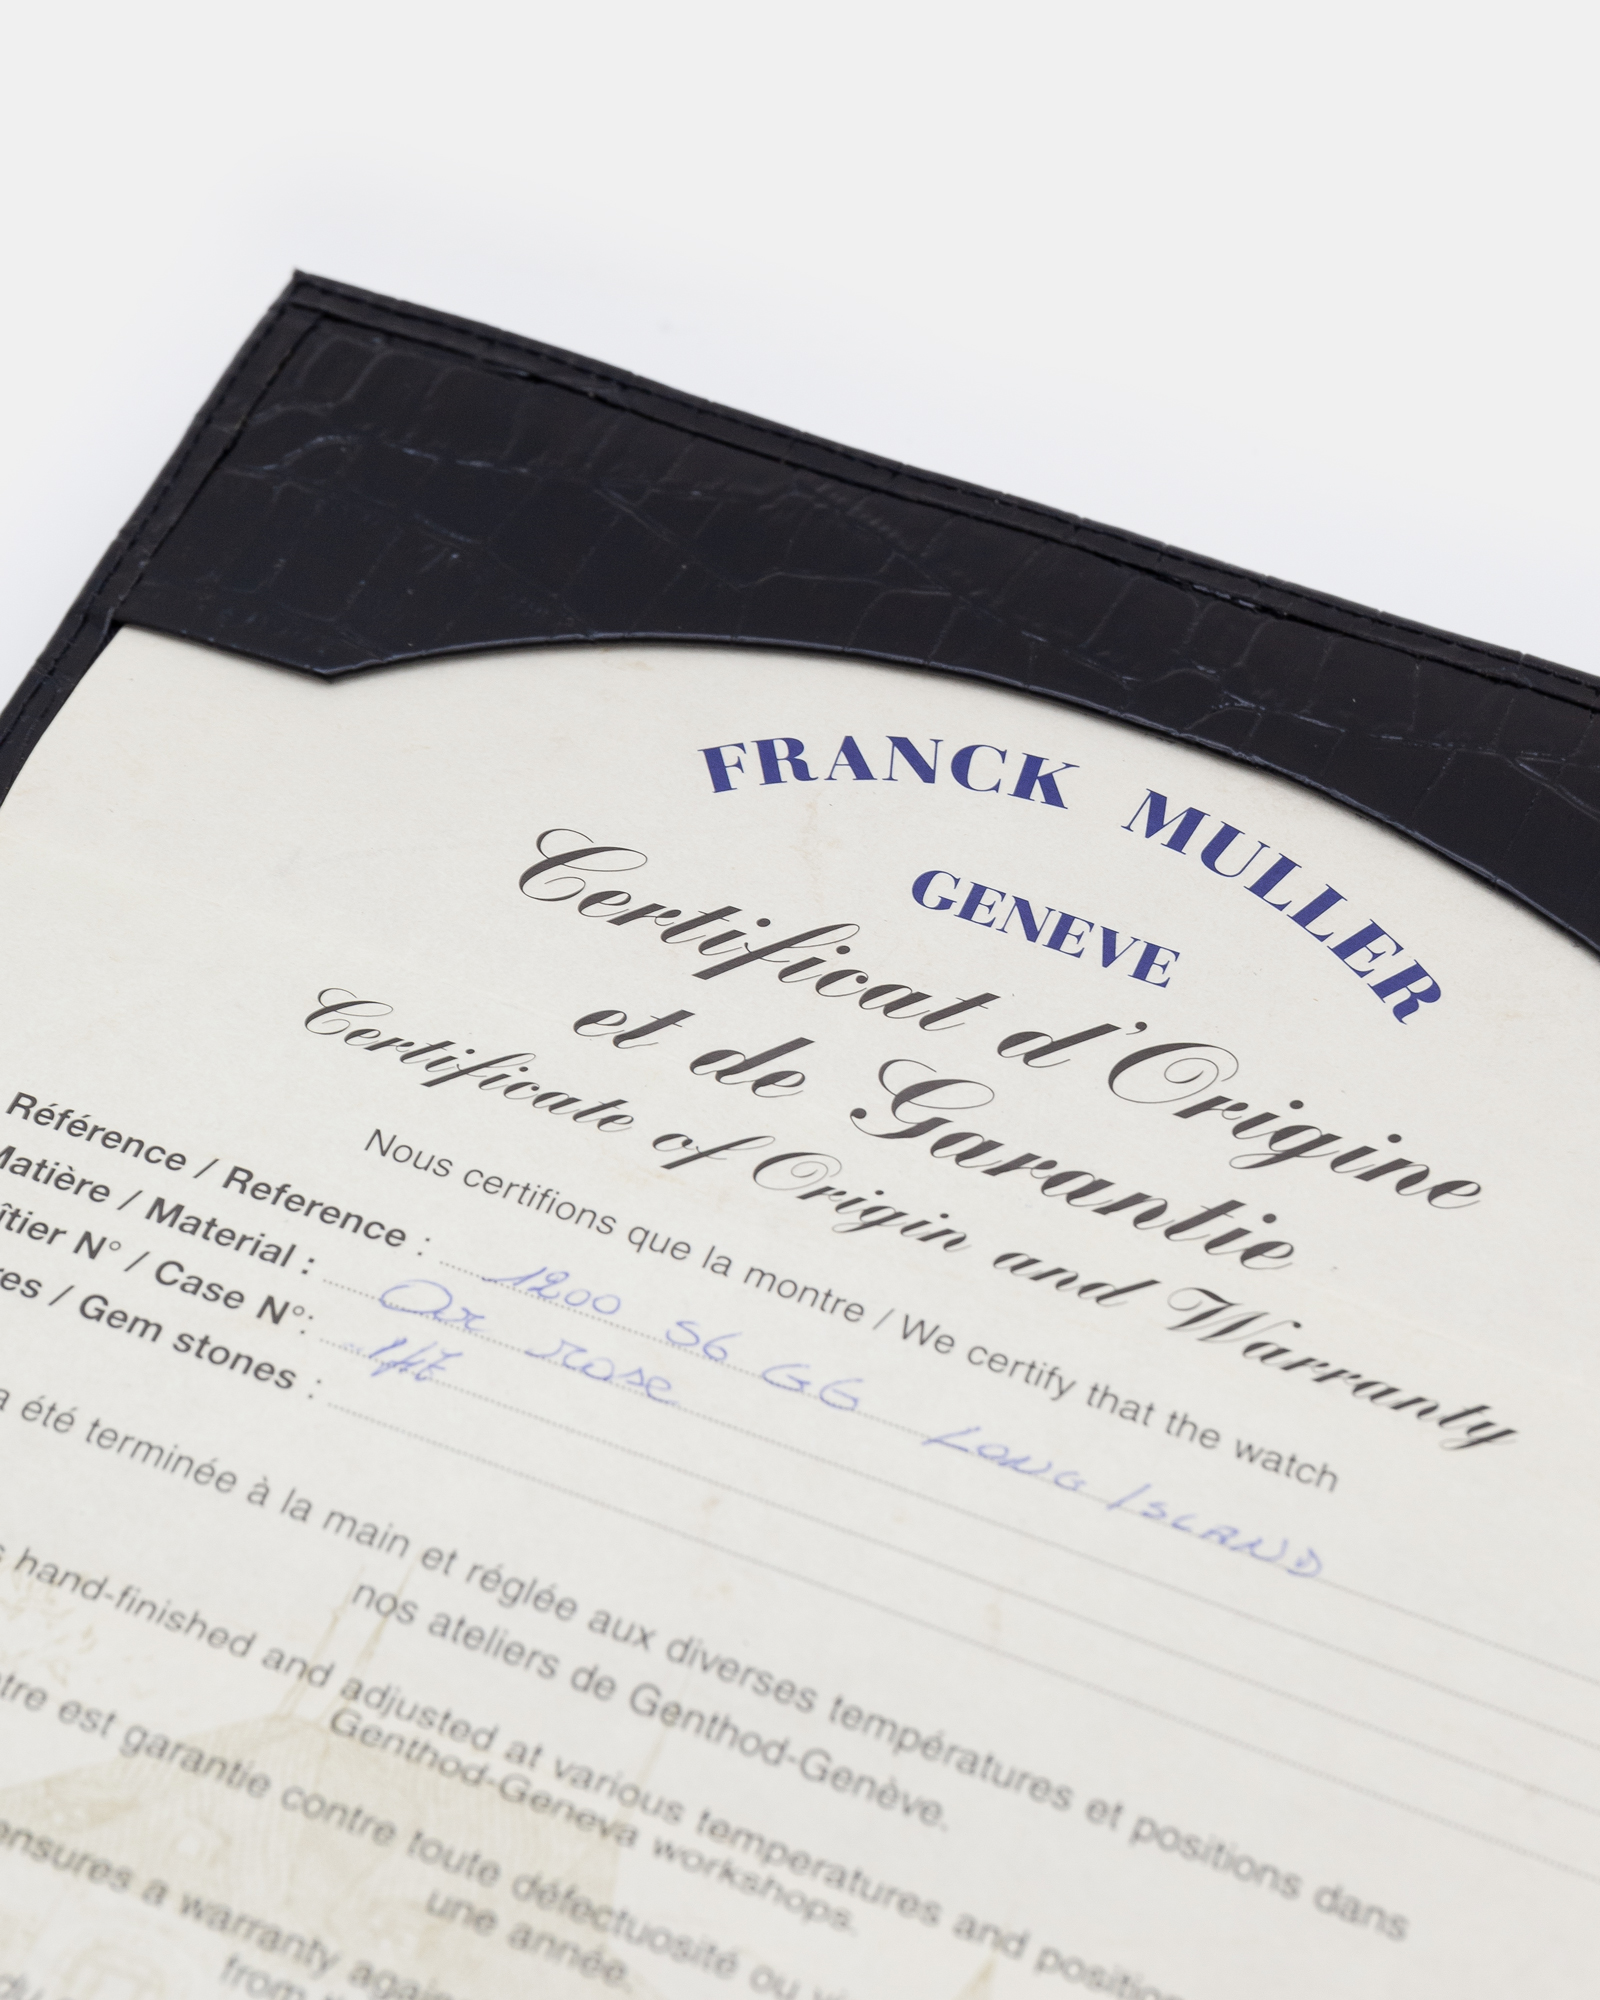 FRANCK MULLER
GENEVE
Certificat d'Origine
et de Garantie
Certificate of Origin and Warranty
Nous certifions que la montre / We certify that the watch
Référence / Reference : 1200 S6 GG LONG ISLAND
Matière / Material : Or rose
îtier N° / Case N°:
res / Gem stones :
a été terminée à la main et réglée aux diverses températures et positions dans
nos ateliers de Genthod-Genève.
s hand-finished and adjusted at various temperatures and position
Genthod-Geneva workshops.
tre est garantie contre toute défectuosité ou
une année.
ensures a warranty again
from
du